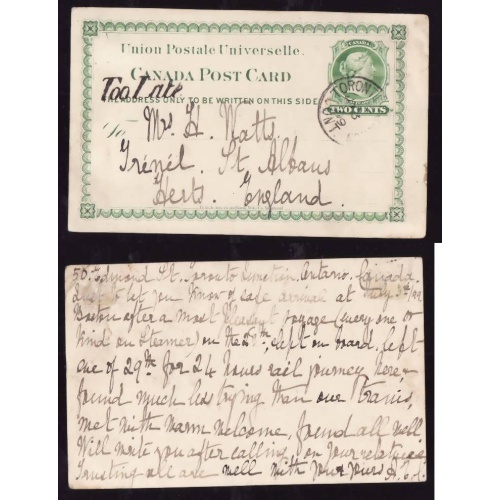 Union Postale Universelle.
CANADA POST CARD
Too Late
THE ADDRESS ONLY TO BE WRITTEN ON THIS SIDE
To
CANADA
TWO CENTS
TORON
Mrs H. Watts.
St Albans
Herts. England.
50. St. Toronto Junction. Ontario. Canada
Just to let you know of safe arrival at
Boston after a most pleasant voyage (every one so
kind on Steamer) on the 28th, slept on board, left
one of 29th for 24 hours rail journey here,
found much less trying than our trains,
met with warm welcome, found all well
Will write you after calling on your relatives
Trusting all are well with you yours